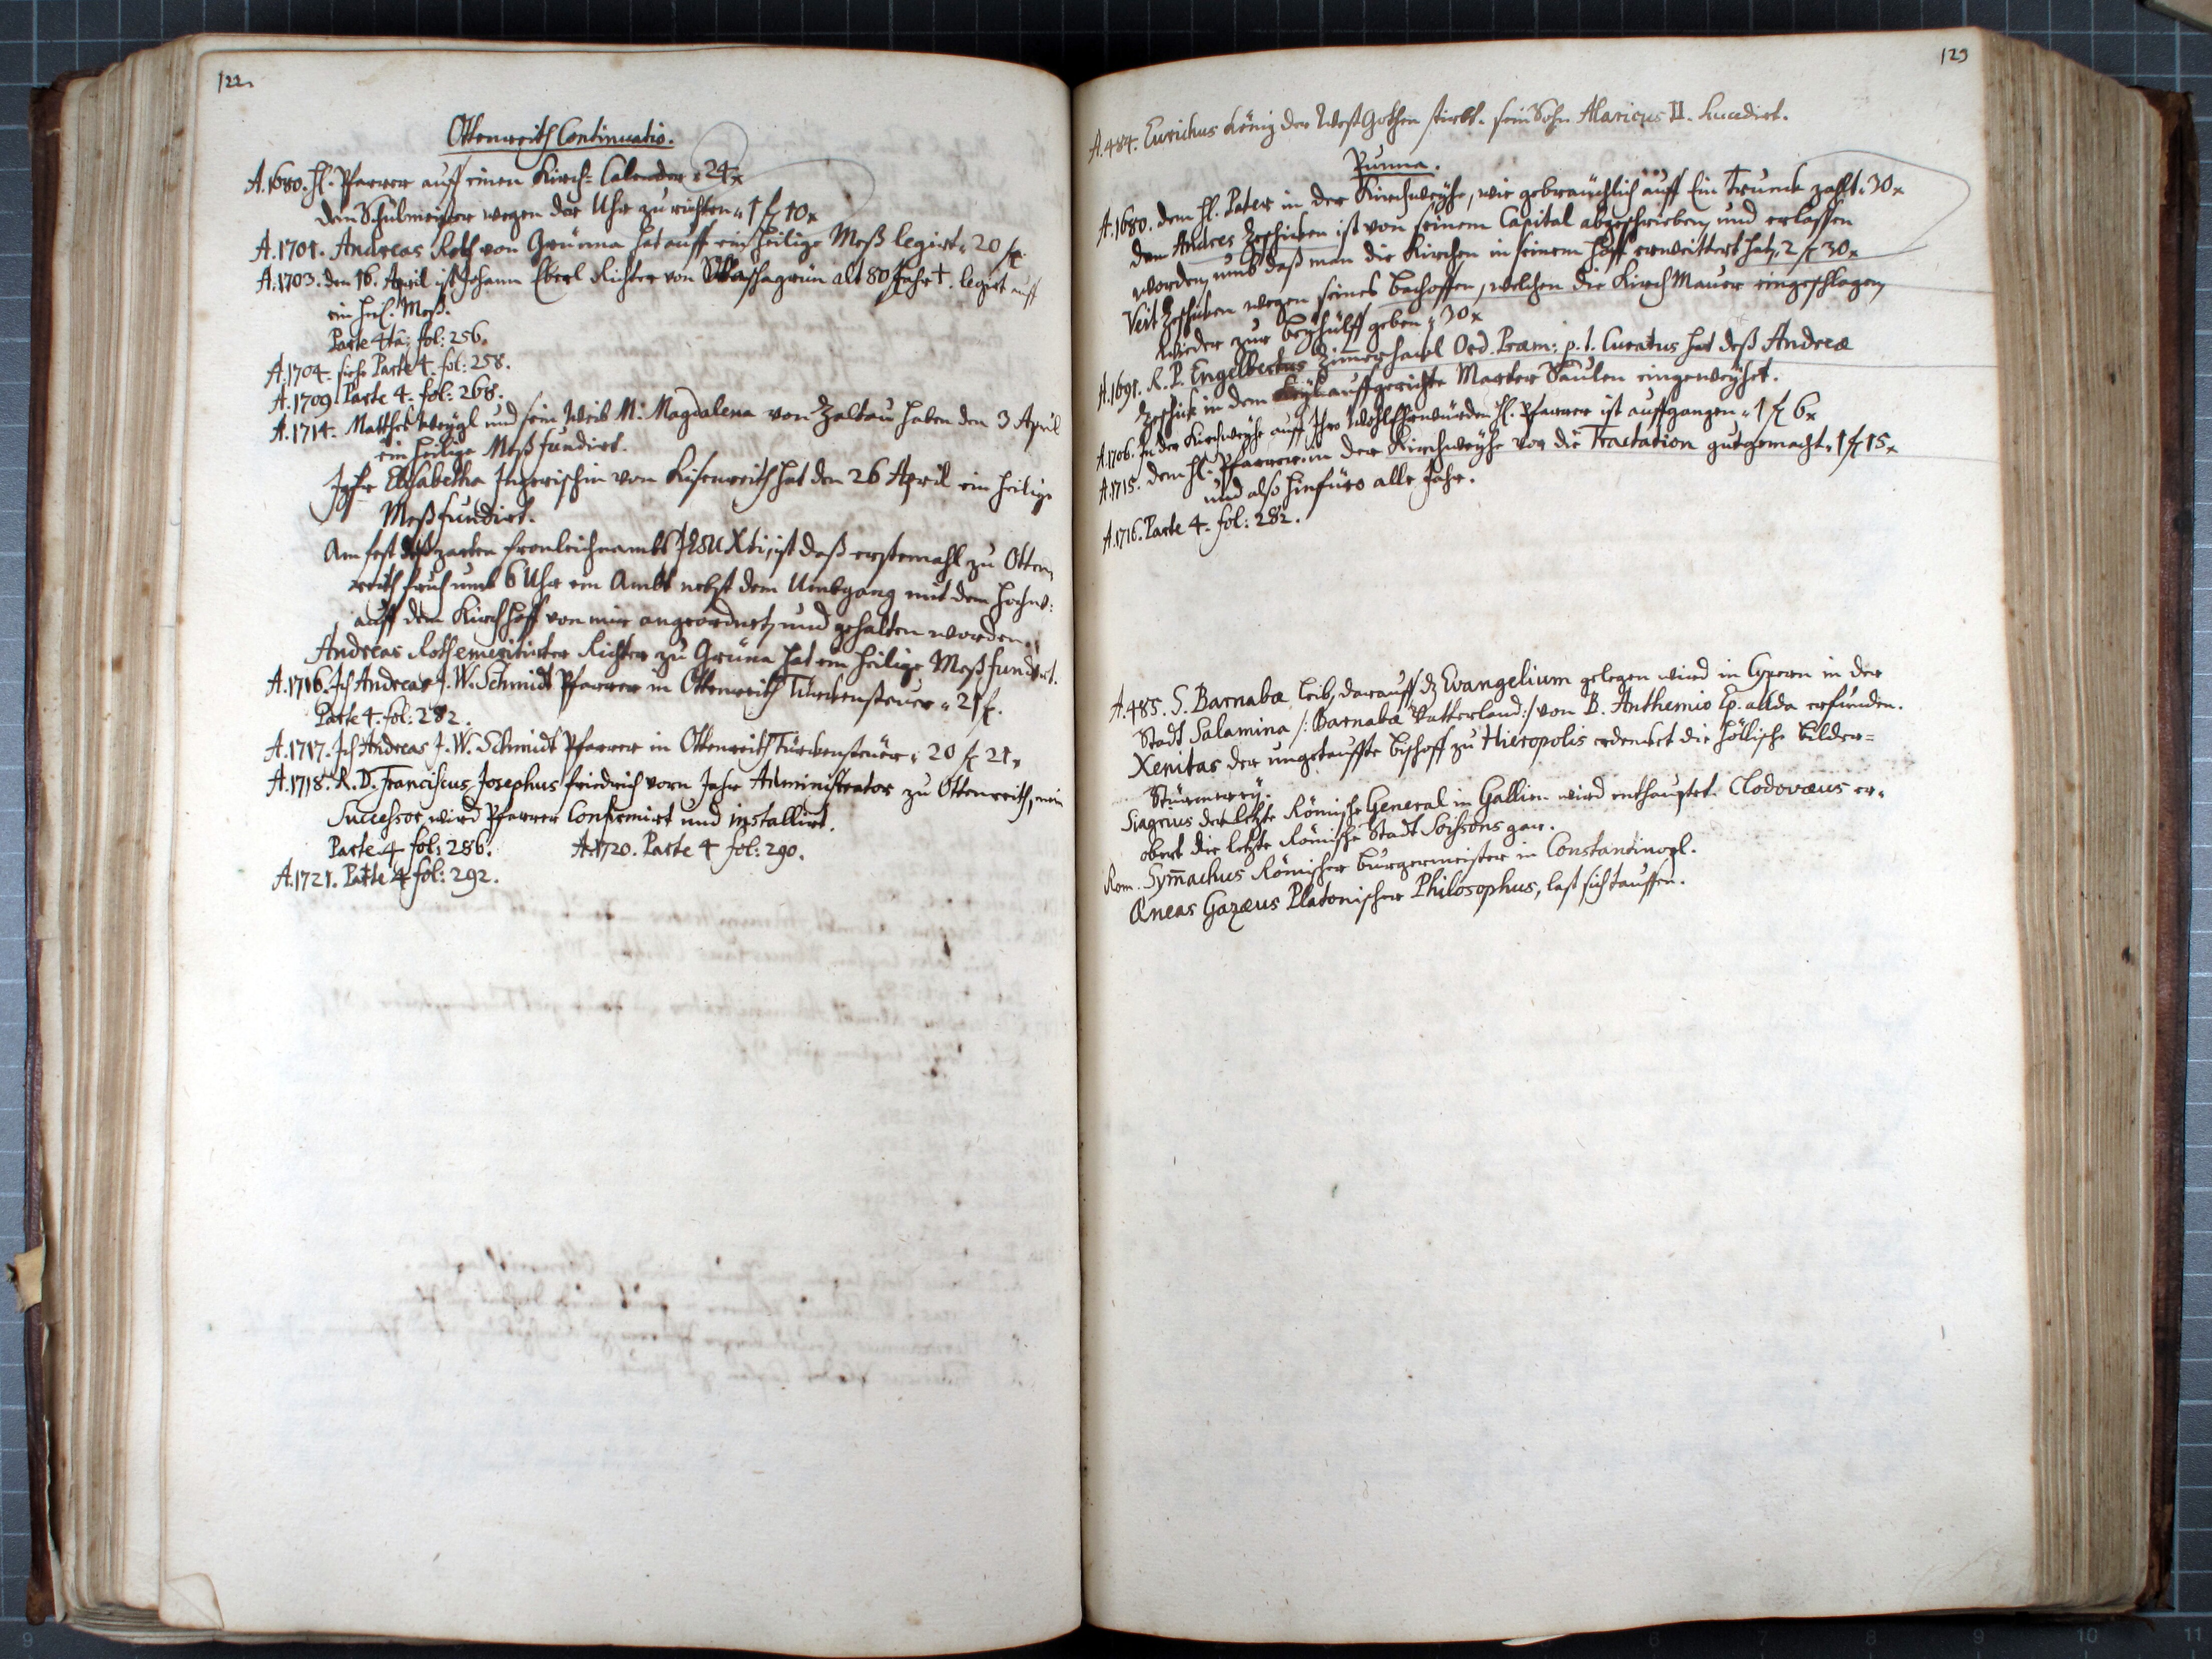 122.
Ottenreith Continuatio.
A. 1680. H. Pfarrer auff einen Kirch= Calender „ 24 x
dem Schulmeister wegen der Uhr zu richten „ 1 f 10 x
A. 1701. Andreas Roth von Grüena hat auff ein heilige Meß legirt „ 20 f.
A. 1703. den 16. April ist Johann Eberl Richter von alt 80 Jahr †. legirt auff
ein heil. Meß.
Parte 4ta, fol: 256.
A. 1704. siehe Parte 4. fol: 258.
A. 1709. Parte 4. fol: 268.
A. 1714. Matthes Weigl und sein Weib M. Magdalena von Zaltau haben den 3 April
ein heilige Meß fundirt.
Jgfr Elisabetha von hat den 26 April ein heilige
Meß fundirt.
Am fest deß zarten fronleichnambs JESU Xti, ist daß erstemahl zu Otten
reith fruh umb 6 Uhr ein Ambt nebst dem Umbgang mit dem hochw:
auff dem Kirchhoff von mir angeordnet, und gehalten worden.
Andreas Roth emeritirter Richter zu Grüna hat ein heilige Meß fundirt.
A. 1716. Ich Andreas J. W. Schmidt Pfarrer in Ottenreith Türckensteuer „ 21 f.
Parte 4. fol: 282.
A. 1717. Ich Andreas J. W. Schmidt Pfarrer in Ottenreith Türckensteüer „ 20 f 21 x
A. 1718. R. D. Franciscus Josephus Friedrich vorn Jahr Administrator zu Ottenreith, mein
Successor, wird Pfarrer Confirmirt und installirt.
Parte 4 fol: 286. A. 1720. Parte 4 fol: 290.
A. 1721. Parte 4 fol: 292.
123
A. 484. Eurichus König der West Gothen stirbt. sein Sohn Alaricus II. Succedirt.
Punna.
A. 1680. dem H. Pater in der Kirchweyhe, wie gebräuchlich auff Ein Trunck zahlt „ 30 x
dem Andres Zeschicken ist von seinem Capital abgeschrieben, und erlassen
worden, umb daß man die Kirchen in seinem hoff erweittert hat, 2 f 30 x
Veit Zeschicken wegen seines Bachoffen, welchen die Kirch Mauer eingeschlagen,
wieder zur beyhülff geben „ 30 x
A. 1691. R. P. Engelbertus Zimmerhackl Ord. Præm: p. t. Curatus hat deß Andreæ
Zeschick in dem auffgerichte Marter Säulen eingeweyhet.
A. 1706. In der Kirchweyhe auff Ihro WohlEhrwürden H. Pfarrer ist auffgangen „ 1 f 6 x
A. 1715. dem H. Pfarrer in der Kirchweyhe vor die Tractation gutgemacht „ 1 f 15 x
und also hinfüro alle Jahr.
A. 1716. Parte 4. fol: 282.
A. 485. S. Barnabæ Leib, darauff dz Evangelium gelegen wird in Cypern in der
Stadt Salamina /: Barnabæ Vatterland :/ von B. Anthemio Ep. allda erfunden.
Xenitas der ungetauffte bischoff zu Hieropolis erdencket die höllische bilder=
Stürmerey.
Siagrius der letzte Römische General in Gallien wird enthauptet. Clodovæus er=
obert die letzte Römische Stadt Soissons gar.
Rom. Sym̄achus Römischer burgermeister in Constantinopl.
Æneas Gazæus Platonischer Philosophus, last sich tauffen.